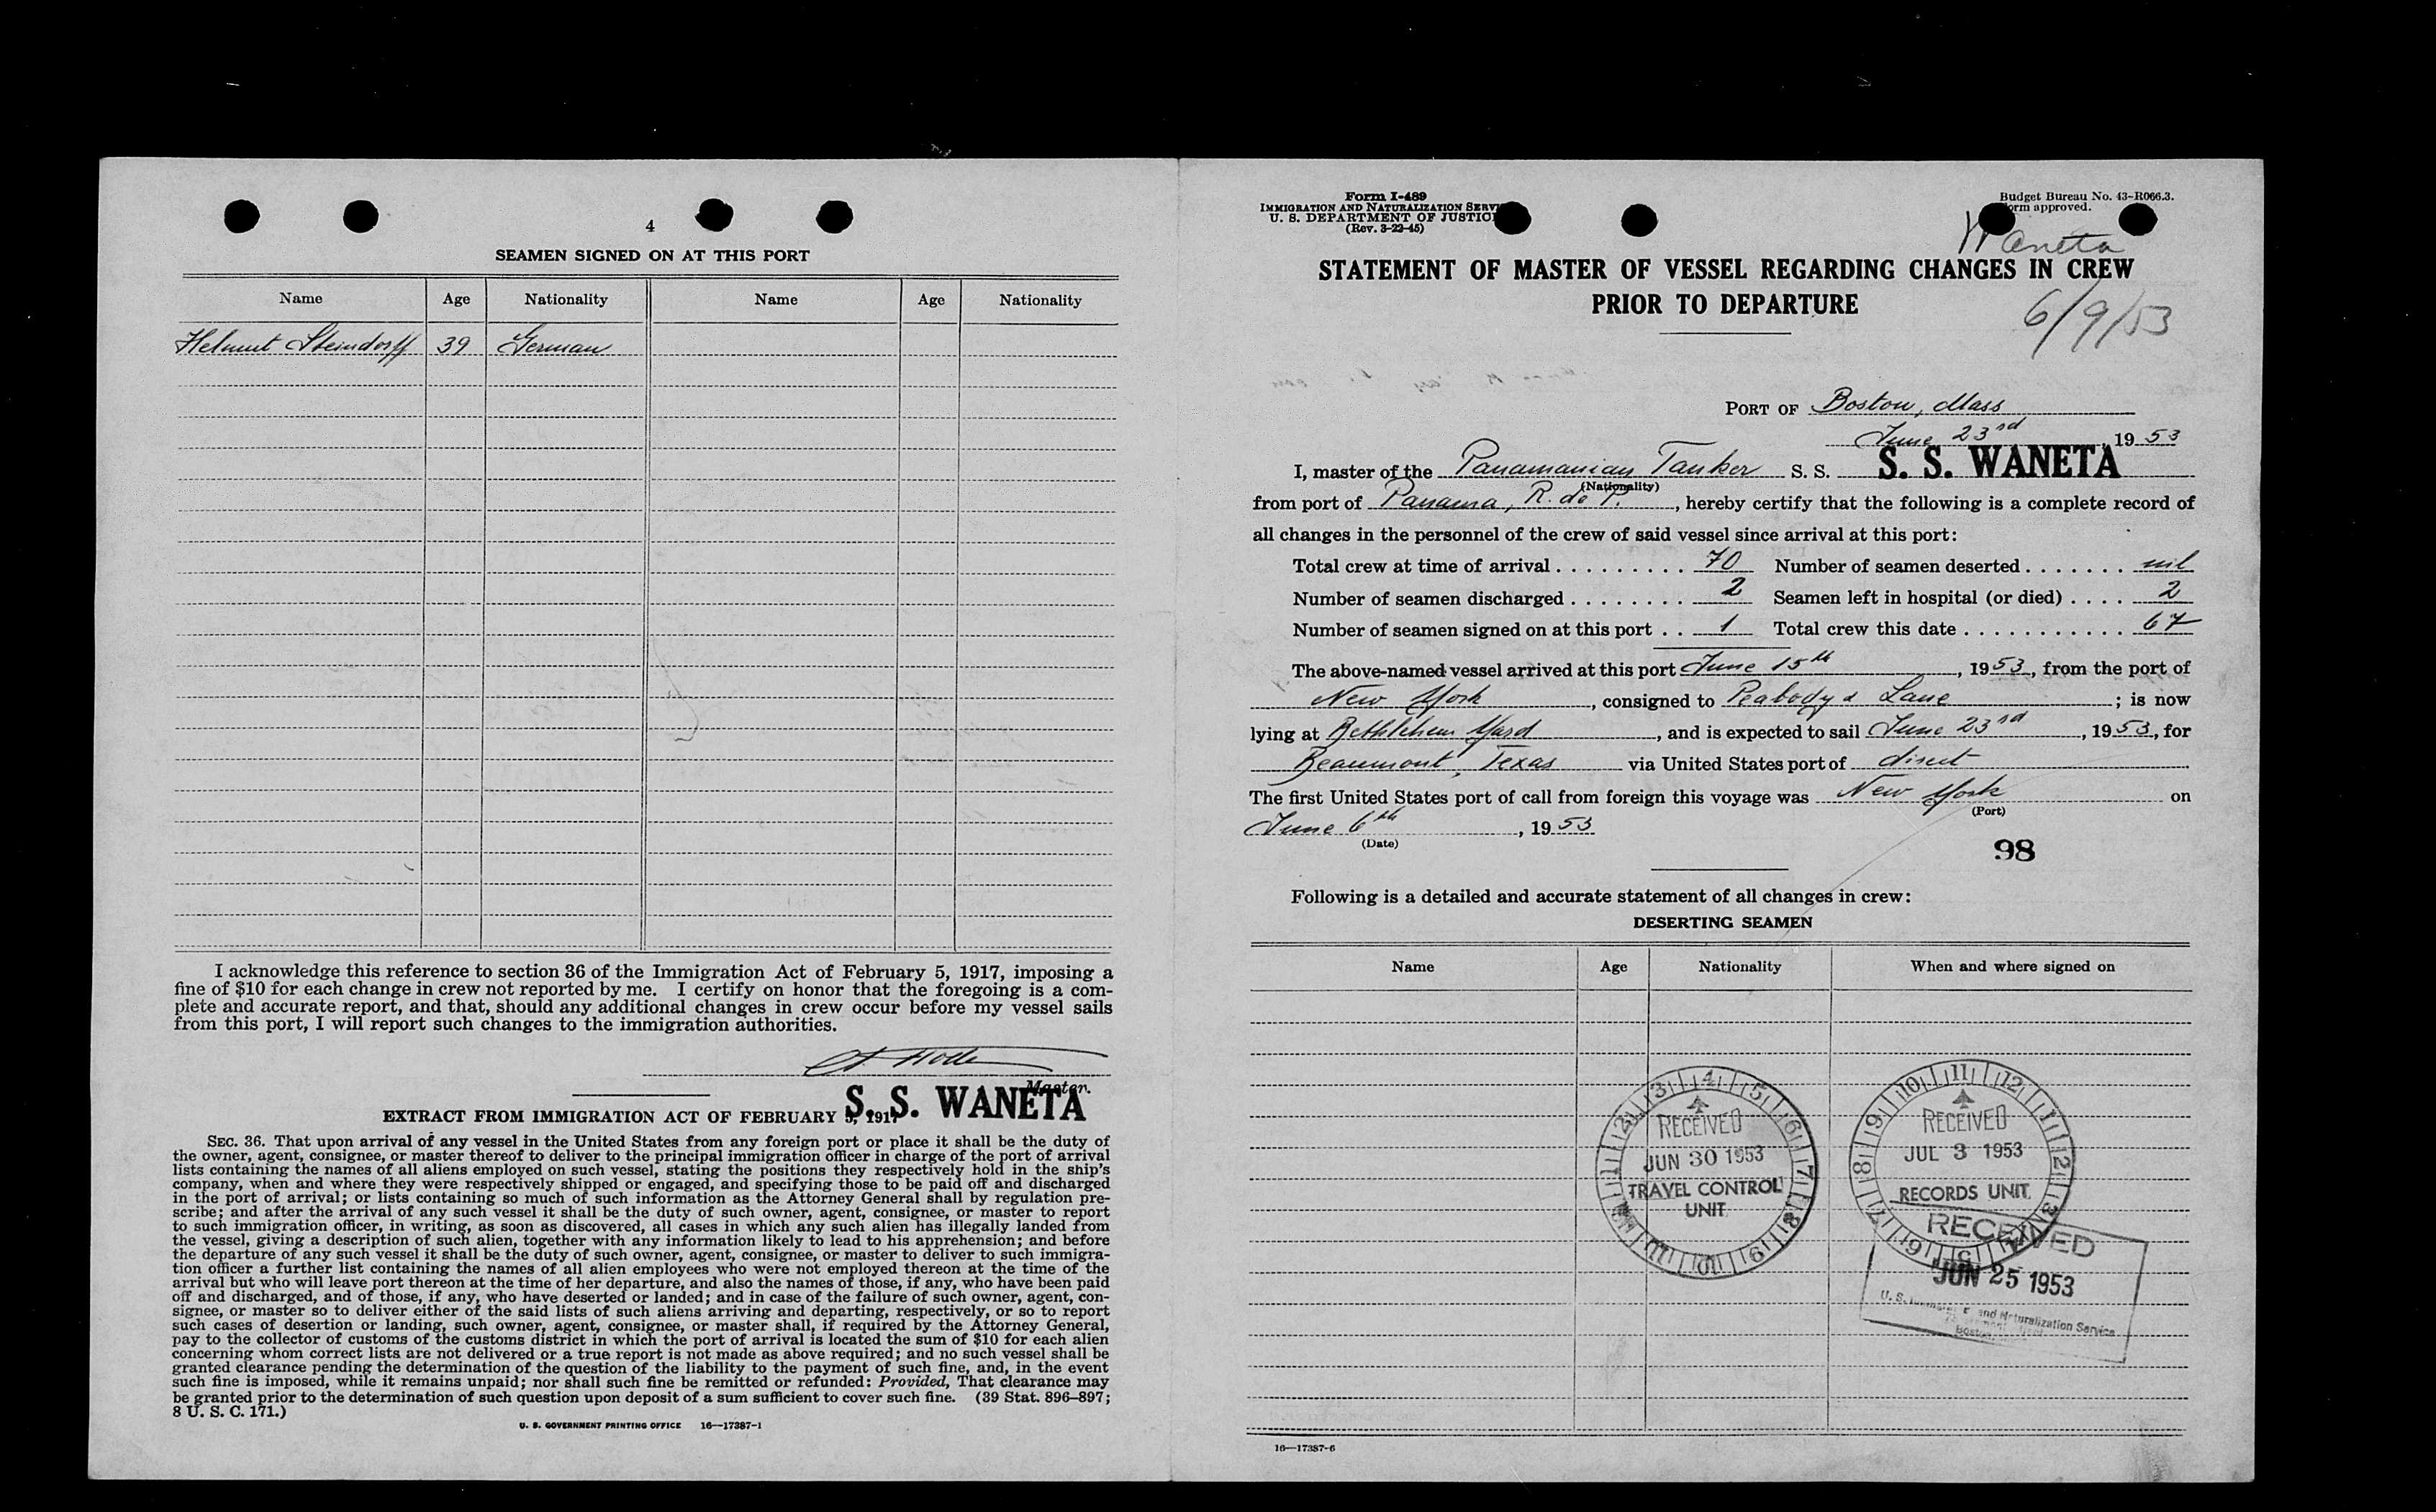 4
SEAMEN SIGNED ON AT THIS PORT
Name Age Nationality Name Age Nationality
Helmut Steindorff 39 German
I acknowledge this reference to section 36 of the Immigration Act of February 5, 1917, imposing a
fine of $10 for each change in crew not reported by me. I certify on honor that the foregoing is a com-
plete and accurate report, and that, should any additional changes in crew occur before my vessel sails
from this port, I will report such changes to the immigration authorities.
Master.
S. S. WANETA
EXTRACT FROM IMMIGRATION ACT OF FEBRUARY 5, 1917
SEC. 36. That upon arrival of any vessel in the United States from any foreign port or place it shall be the duty of
the owner, agent, consignee, or master thereof to deliver to the principal immigration officer in charge of the port of arrival
lists containing the names of all aliens employed on such vessel, stating the positions they respectively hold in the ship's
company, when and where they were respectively shipped or engaged, and specifying those to be paid off and discharged
in the port of arrival; or lists containing so much of such information as the Attorney General shall by regulation pre-
scribe; and after the arrival of any such vessel it shall be the duty of such owner, agent, consignee, or master to report
to such immigration officer, in writing, as soon as discovered, all cases in which any such alien has illegally landed from
the vessel, giving a description of such alien, together with any information likely to lead to his apprehension; and before
the departure of any such vessel it shall be the duty of such owner, agent, consignee, or master to deliver to such immigra-
tion officer a further list containing the names of all alien employees who were not employed thereon at the time of the
arrival but who will leave port thereon at the time of her departure, and also the names of those, if any, who have been paid
off and discharged, and of those, if any, who have deserted or landed; and in case of the failure of such owner, agent, con-
signee, or master so to deliver either of the said lists of such aliens arriving and departing, respectively, or so to report
such cases of desertion or landing, such owner, agent, consignee, or master shall, if required by the Attorney General,
pay to the collector of customs of the customs district in which the port of arrival is located the sum of $10 for each alien
concerning whom correct lists are not delivered or a true report is not made as above required; and no such vessel shall be
granted clearance pending the determination of the question of the liability to the payment of such fine, and, in the event
such fine is imposed, while it remains unpaid; nor shall such fine be remitted or refunded: Provided, That clearance may
be granted prior to the determination of such question upon deposit of a sum sufficient to cover such fine. (39 Stat. 896–897;
8 U. S. C. 171.)
U. S. GOVERNMENT PRINTING OFFICE 16—17387-1
Form I-489
IMMIGRATION AND NATURALIZATION SERVI
U. S. DEPARTMENT OF JUSTIC
(Rev. 3-22-45)
Budget Bureau No. 43-R066.3.
orm approved.
Waneta
STATEMENT OF MASTER OF VESSEL REGARDING CHANGES IN CREW
PRIOR TO DEPARTURE
6/9/53
PORT OF Boston, Mass
June 23rd, 19 53
I, master of the Panamanian Tanker S. S. S. S. WANETA
(Nationality)
from port of Panama, R. de P., hereby certify that the following is a complete record of
all changes in the personnel of the crew of said vessel since arrival at this port:
Total crew at time of arrival . . . . . . . . . 70 Number of seamen deserted . . . . . . . nil
Number of seamen discharged . . . . . . . . 2 Seamen left in hospital (or died) . . . . 2
Number of seamen signed on at this port . . 1 Total crew this date . . . . . . . . . . . . 67
The above-named vessel arrived at this port June 15th, 19 53, from the port of
New York, consigned to Peabody & Lane; is now
lying at Bethlehem Yard, and is expected to sail June 23rd, 19 53, for
Beaumont, Texas via United States port of direct
The first United States port of call from foreign this voyage was New York on
(Port)
June 6th, 19 53
(Date)
98
Following is a detailed and accurate statement of all changes in crew:
DESERTING SEAMEN
Name Age Nationality When and where signed on
RECEIVED
JUN 30 1953
TRAVEL CONTROL
UNIT
RECEIVED
JUL 3 1953
RECORDS UNIT
RECEIVED
JUN 25 1953
and Naturalization Service
Boston
16—17387-6